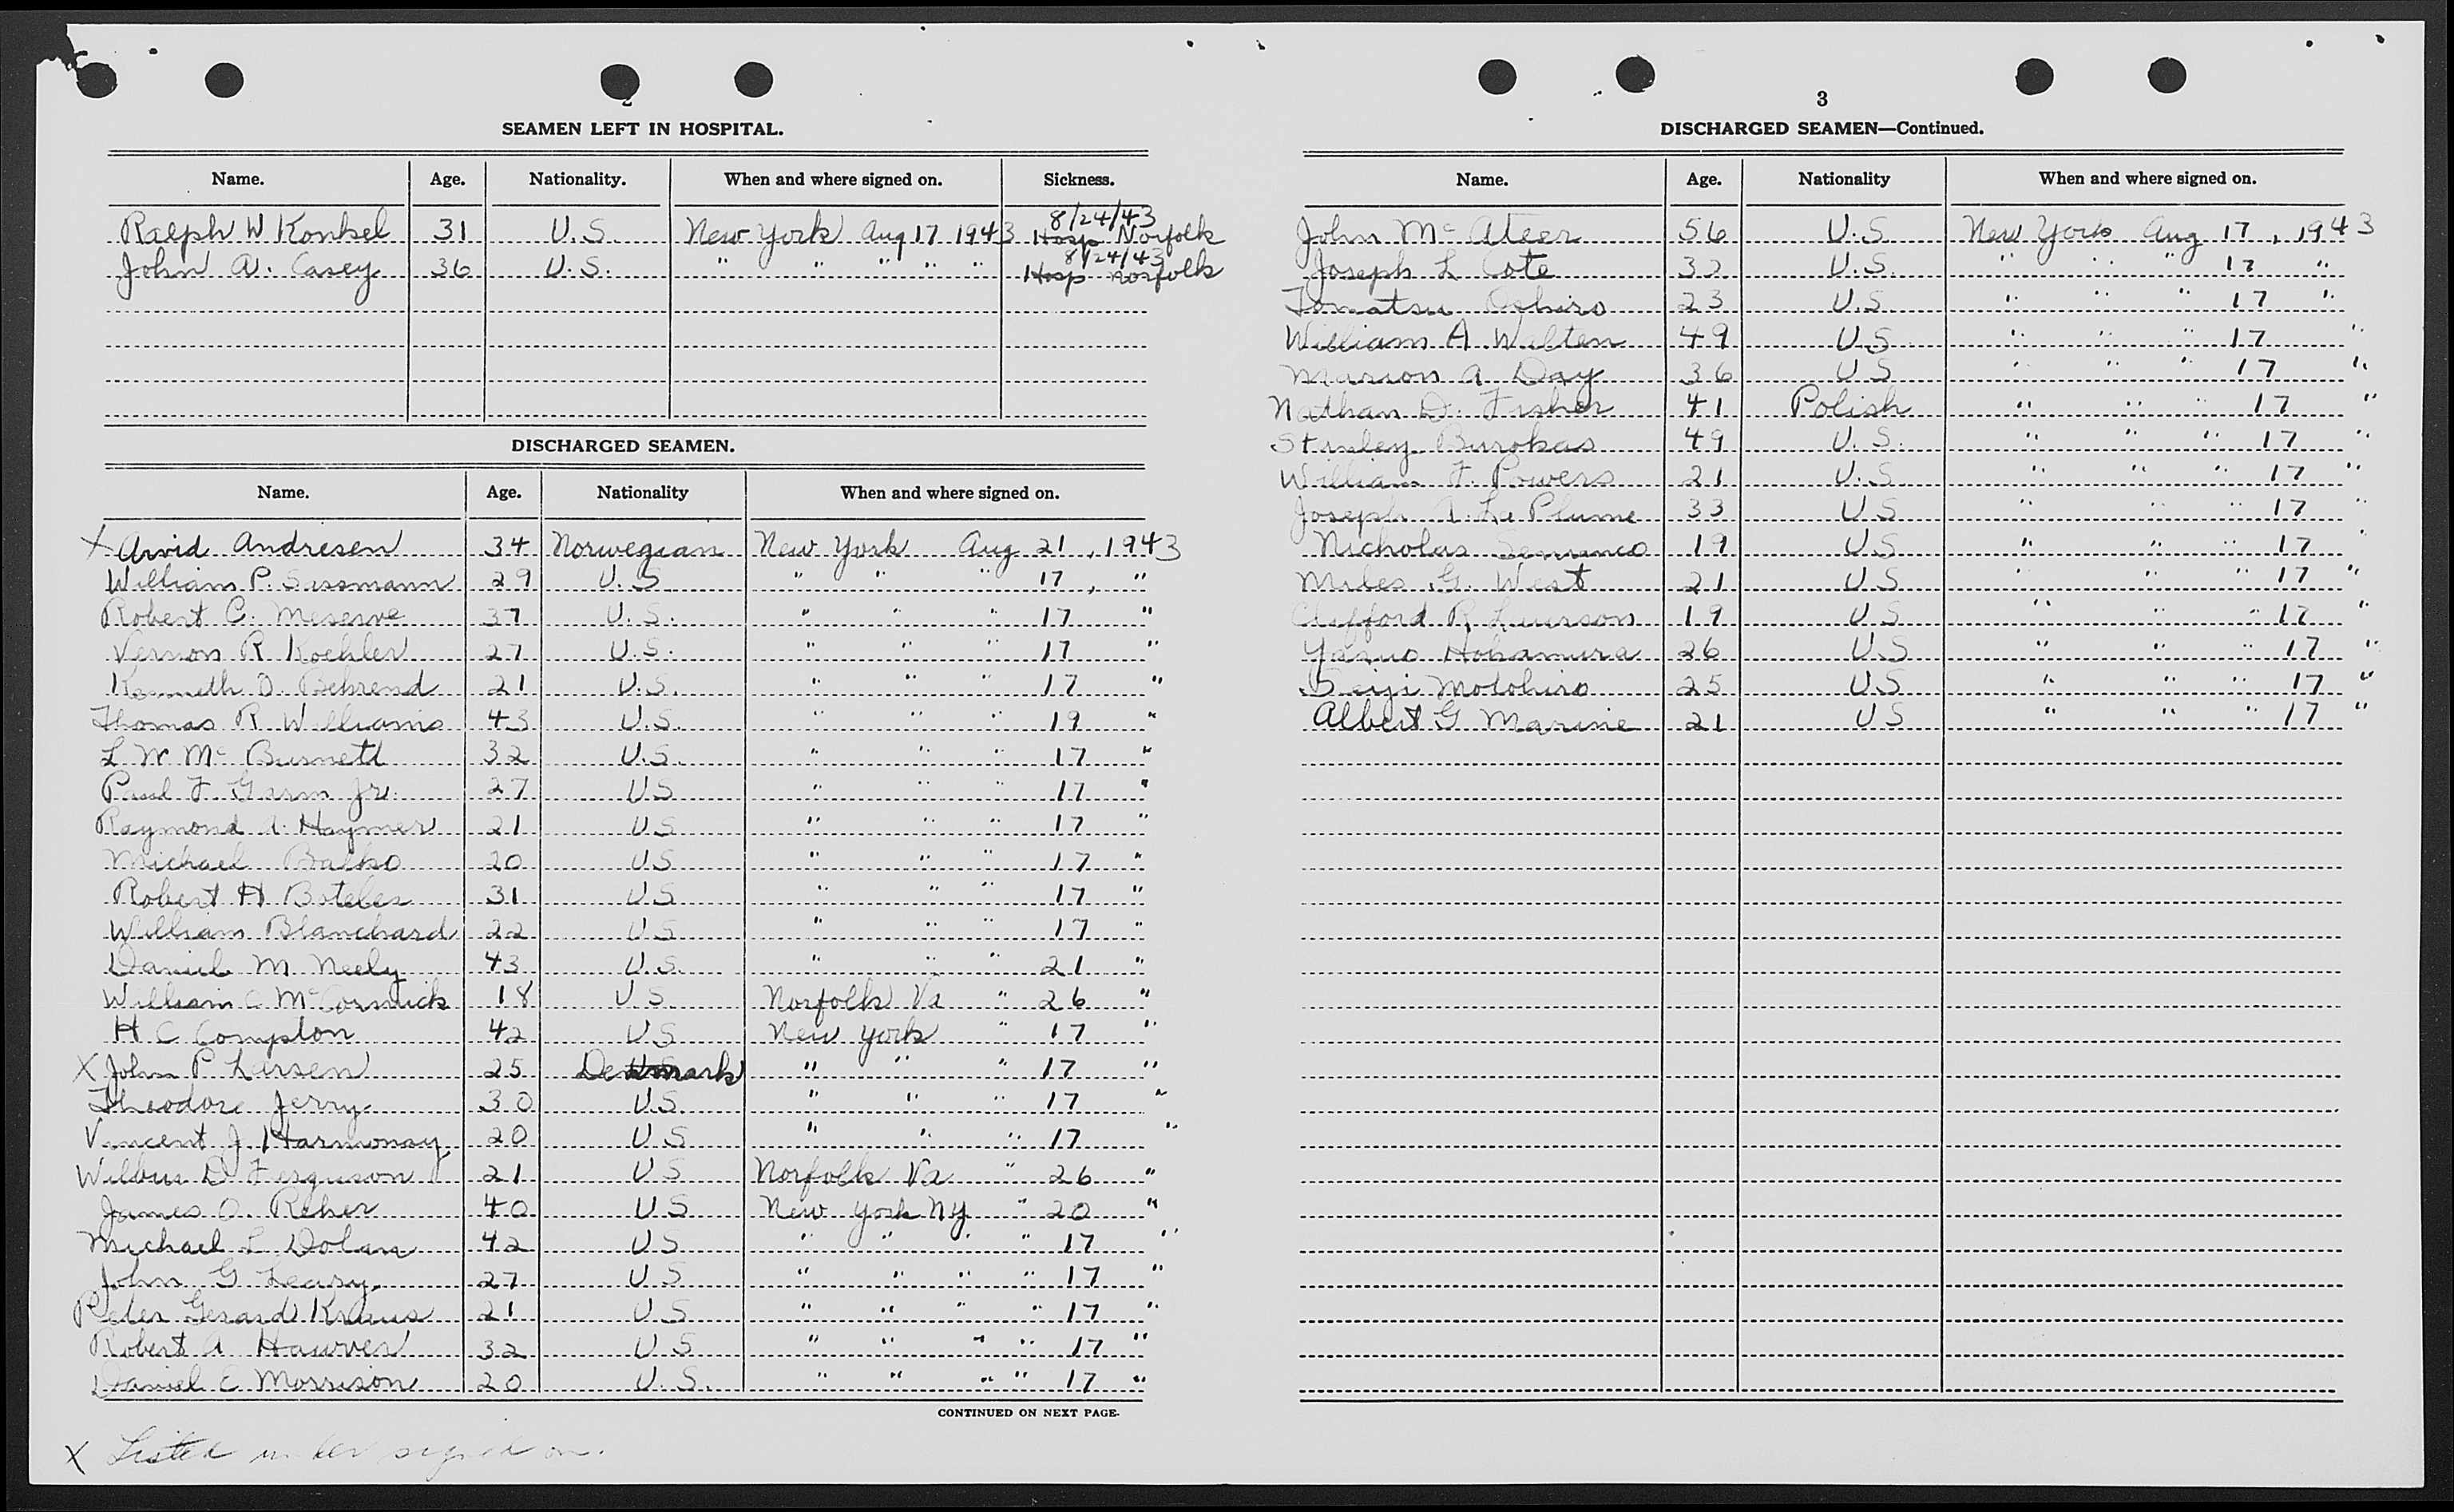 2
SEAMEN LEFT IN HOSPITAL.
Name. Age. Nationality. When and where signed on. Sickness.
Ralph W Konkel 31 U.S. New York Aug 17 1943 8/24/43 Hosp Norfolk
John A. Casey 36 U.S. " " " " " 8/24/43 Hosp Norfolk
DISCHARGED SEAMEN.
Name. Age. Nationality When and where signed on.
X Arvid Andresen 34 Norwegian New York Aug 21, 1943
William P. Sassmann 29 U.S. " " " 17, "
Robert C. Meserve 37 U.S. " " " 17 "
Vernon R Koehler 27 U.S. " " " 17 "
Kenneth O. Behrend 21 U.S. " " " 17 "
Thomas R Williams 43 U.S. " " " 19 "
L W Mc Burnett 32 U.S. " " " 17 "
Paul F. Garm Jr. 27 US " " " 17 "
Raymond A. Haymer 21 US " " " 17 "
Michael Balko 20 US " " " 17 "
Robert H Boteler 31 US " " " 17 "
William Blanchard 22 US " " " 17 "
Daniel M Neely 43 U.S. " " " 21 "
William C McCormick 18 US Norfolk Va " 26 "
H C Compton 42 US New York " 17 "
X John P Larsen 25 Denmark " " " 17 "
Theodore Jerry 30 U.S. " " " 17 "
Vincent J Harmonay 20 US " " " 17 "
Wilbur D Ferguson 21 US Norfolk Va " 26 "
James O. Reher 40 US New York NY " 20 "
Michael L Dolan 42 US " " " " 17 "
John G Leary 27 US " " " " 17 "
Peter Gerard Kraus 21 US " " " " 17 "
Robert A Hawver 32 US " " " " 17 "
Daniel E Morrison 20 U.S. " " " " 17 "
CONTINUED ON NEXT PAGE.
X Listed under signed on.
3
DISCHARGED SEAMEN—Continued.
Name. Age. Nationality When and where signed on.
John Mc Ateer 56 U.S New York Aug 17, 1943
Joseph L Cote 32 U.S. " " " 17 "
Tomatsu Oshiro 23 U.S. " " " 17 "
William A Walten 49 US " " " 17 "
Marion A Day 36 US " " " 17 "
Nathan D. Fisher 41 Polish " " " 17 "
Stanley Burokas 49 U.S. " " " 17 "
William F. Powers 21 U.S " " " 17 "
Joseph A. La Plume 33 US " " " 17 "
Nicholas 19 US " " " 17 "
Miles G. West 21 US " " " 17 "
Clifford R Laurson 19 US " " " 17 "
Yasuo Hokamura 26 US " " " 17 "
Seiji Motohiro 25 US " " " 17 "
Albert G Marine 21 US " " " 17 "